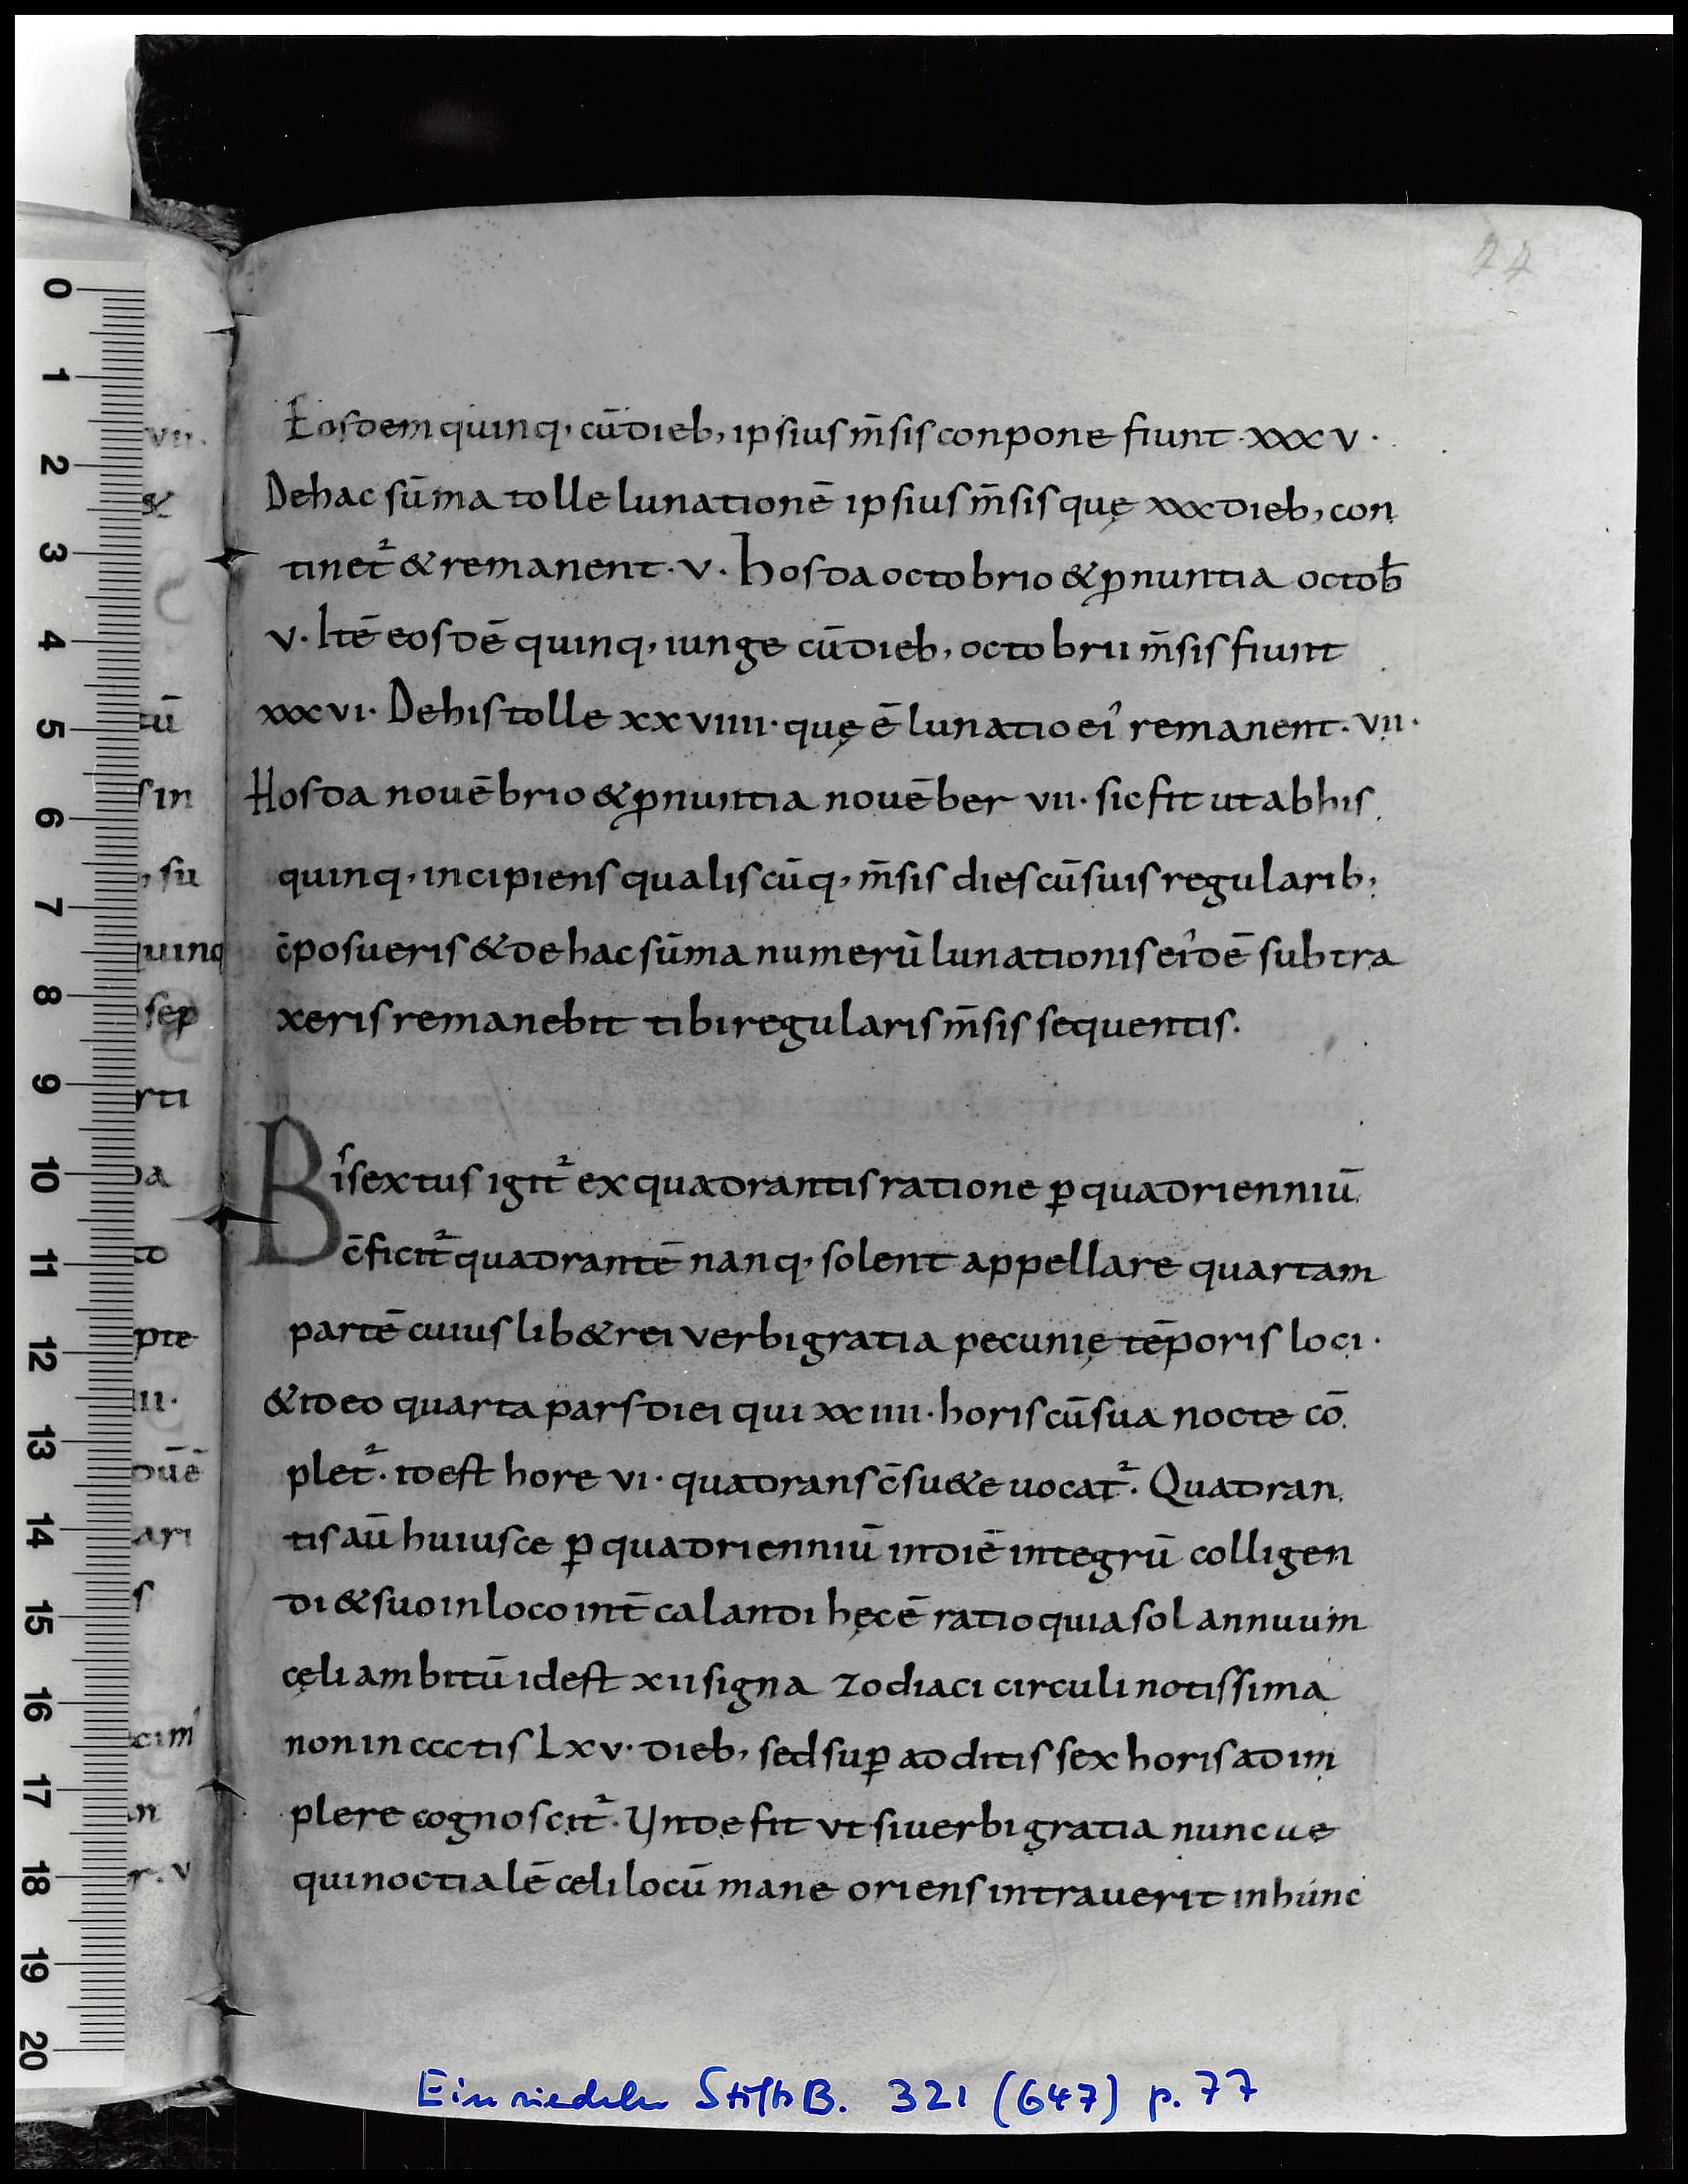 77
Eosdem quinq; cū dieb; ipsius m̄sis conpone fiunt · xxxv ·
De hac sūma tolle lunationē ipsius m̄sis quę xxx dieb; con
tinet᷑ & remanent · v · hos da octobrio & p̄nuntia octob̄
v · Itē eosdē quinq; iunge cū dieb; octobrii m̄sis fiunt
xxxvi · De his tolle xxviiii · quę ē lunatio ei᾽ remanent · vii ·
Hos da nouēbrio & p̄nuntia nouēber vii · sic fit ut ab his
quinq; incipiens qualiscūq; m̄sis dies cū suis regularib;
c̄posueris & de hac sūma numerū lunationis ei᾽dē subtra
xeris remanebit tibi regularis m̄sis sequentis ·
Bisextus igit᷑ ex quadrantis ratione ꝑ quadrienniū
c̄ficit᷑ quadrantē nanq; solent appellare quartam
partē cuiuslib& rei verbi gratia pecunię tēporis loci ·
& ideo quarta pars diei qui xxiiii · horis cū sua nocte cō
plet᷑ · id est hore vi · quadrans c̄sueue uocat᷑ · Quadran
tis aū huiusce ꝑ quadrienniū in diē integrū colligen
di & suo in loco int̄calandi hęc ē ratio quia sol annuum
cęli ambitū id est xii signa zodiaci circuli notissima
non in ccctis Lxv · dieb; sed suꝑ additis sex horis adim
plere cognoscit᷑ · Unde fit ut si uerbi gratia nunc ue
quinoctialē celi locū mane oriens intrauerit in hunc
vii ·
&
tū
sin
; su
quinq
sep
rti
da
to
pte
iii ·
ouē
ari
s
cim
m
r · v
0
1
2
3
4
5
6
7
8
9
10
11
12
13
14
15
16
17
18
19
20
Einsiedeln StiftsB. 321 (647) p. 77